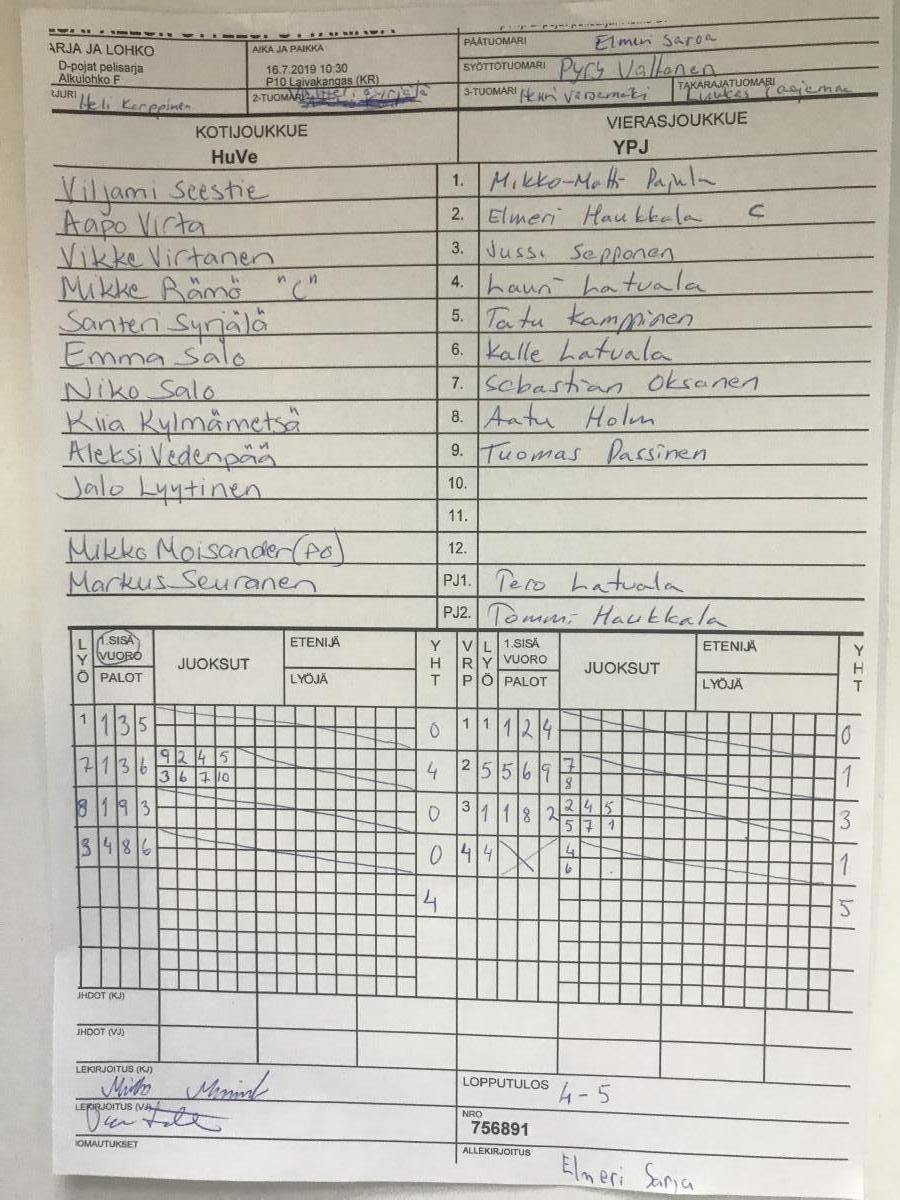 ARJA JA LOHKO
D-pojat pelisarja
Alkulohko F
AIKA JA PAIKKA
16.7.2019 10:30
P10 Laivakangas (KR)
PÄÄTUOMARI Elmeri Saroa
SYÖTTÖTUOMARI Pyry Valtonen
JURI Heli Karppinen
2-TUOMARI
3-TUOMARI Henri
TAKARAJATUOMARI
KOTIJOUKKUE
HuVe
VIERASJOUKKUE
YPJ
Viljami Seestie 1. Mikko-Matti Pajula
Aapo Virta 2. Elmeri Haukkala C
Vikke Virtanen 3. Jussi Sepponen
Mikke Rämö "C" 4. Lauri Latvala
Santeri Syrjälä 5. Tatu Kamppinen
Emma Salo 6. Kalle Latvala
Niko Salo 7. Sebastian Oksanen
Kiia Kylmämetsä 8. Aatu Holm
Aleksi Vedenpää 9. Tuomas Passinen
Jalo Lyytinen 10.
11.
Mikko Moisander (PO) 12.
Markus Seuranen PJ1. Tero Latvala
PJ2. Tommi Haukkala
LYÖ 1.SISÄ VUORO PALOT JUOKSUT ETENIJÄ LYÖJÄ YHT VRP LYÖ 1.SISÄ VUORO PALOT JUOKSUT ETENIJÄ LYÖJÄ YHT
1 1 3 5 0 1 1 1 2 4 0
7 1 3 6 9 2 4 5 4 2 5 5 6 9 7 1
3 6 7 10 8
8 1 9 3 0 3 1 1 8 2 2 4 5 3
5 7 1
3 4 8 6 0 4 4 4 1
6
4 5
JHDOT (KJ)
JHDOT (VJ)
LEKIRJOITUS (KJ)
LOPPUTULOS 4-5
LEKIRJOITUS (VJ)
NRO
756891
IOMAUTUKSET
ALLEKIRJOITUS Elmeri Sarja